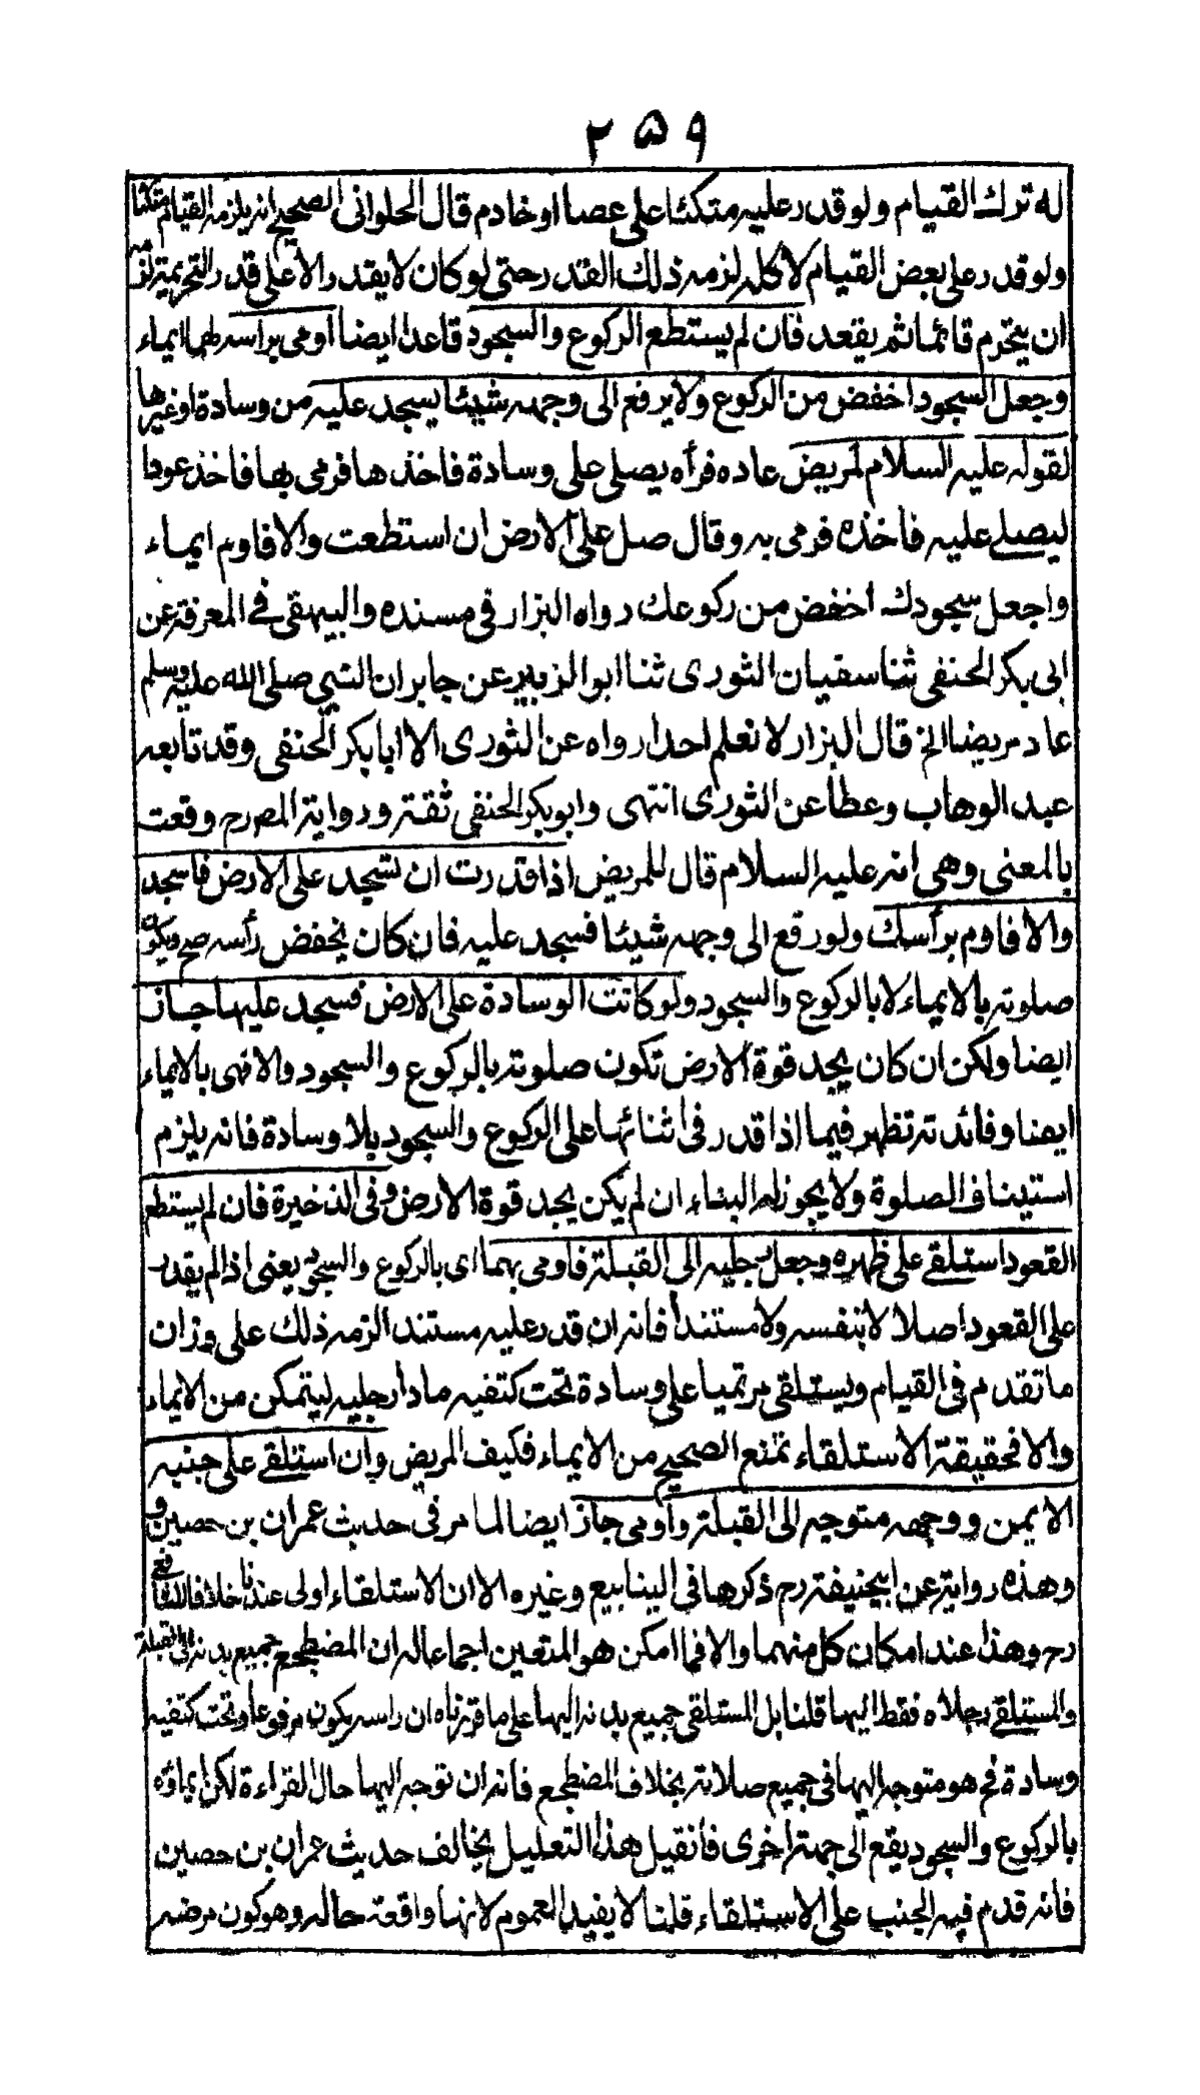 ۲۵۹
له ترك القيام ولو قدر عليه متكئا على عصا او خادم قال الحلوانى الصحيح انه يلزمه القيام متكئا
ولو قدر على بعض القيام لا كله لزمه ذلك القدر حتى لو كان لا يقدر الا على قدر التحريمة لزمه
ان يتحرم قائما ثم يقعد فان لم يستطع الركوع والسجود قاعدا ايضا اومى براسه لهما ايماء
وجعل السجود اخفض من الركوع ولا يرفع الى وجهه شيئا يسجد عليه من وسادة او غيرها
لقوله عليه السلام لمريض عاده فرآه يصلى على وسادة فاخذها فرمى بها فاخذ عودا
ليصلے عليه فاخذه فرمى به وقال صل على الارض ان استطعت والا فاوم ايماء
واجعل سجودك اخفض من ركوعك رواه البزار فى مسنده والبيهقى فے المعرفة عن
ابى بكر الحنفى ثنا سفيان الثورى ثنا ابو الزبير عن جابر ان النبى صلى الله عليه وسلم
عاد مريضا الخ قال البزار لا نعلم احدا رواه عن الثورى الا ابا بكر الحنفى وقد تابعه
عبد الوهاب وعطأ عن الثورى انتهى وابو بكر الحنفى ثقة ورواية المصرح وقعت
بالمعنى وهى انه عليه السلام قال للمريض اذا قدرت ان تسجد على الارض فاسجد
والا فاوم برأسك ولو رفع الى وجهه شيئا فسجد عليه فان كان يخفض رأسه صح ويكون
صلوته بالايماء لا بالركوع والسجود ولو كانت الوسادة على الارض فسجد عليها جاز
ايضا ولكن ان كان يجد قوة الارض تكون صلوته بالركوع والسجود والا فهى بالايماء
ايضا وفائدته تظهر فيما اذا قدر فى اثنائها على الركوع والسجود بلا وسادة فانه يلزم
استيناف الصلوة ولا يجوز له البناء ان لم يكن يجد قوة الارض وفى الذخيرة فان لم يستطع
القعود استلقے على ظهره وجعل رجليه الى القبلة فاومى بهما اى بالركوع والسجود يعنى اذا لم يقدر
على القعود اصلا لا بنفسه ولا مستندا فانه ان قدر عليه مستندا لزمه ذلك على وزان
ما تقدم فى القيام ويستلقى مرتميا على وسادة تحت كتفيه مادا رجليه ليتمكن من الايماء
والا فحقيقة الاستلقاء تمنع الصحيح من الايماء فكيف المريض وان استلقے على جنبه
الايمن ووجهه متوجه الى القبلة واومى جاز ايضا لما مر فى حديث عمران بن حصين
وهذه رواية عن ابيحنيفة رح ذكرها فى الينابيع وغيره الا ان الاستلقاء اولى عندنا خلافا للشافعى
رح وهذا عند امكان كل منهما والا فما امكن هو المتعين اجماعا له ان المضطجع جميع بدنه الى القبلة
والمستلقے رجلاه فقط اليها قلنا بل المستلقى جميع بدنه اليها على ما قررناه ان راسه يكون مرفوعا وتحت كتفيه
وسادة فح هو متوجه اليها فى جميع صلاته بخلاف المضطجع فانه ان توجه اليها حال القراءة لكن ايماؤه
بالركوع والسجود يقع الى جهة اخرى فان قيل هذا التعليل يخالف حديث عمران بن حصين
فانه قدم فيه الجنب على الاستلقاء قلنا لا يفيد العموم لانها واقعة حاله وهو كون مرضه